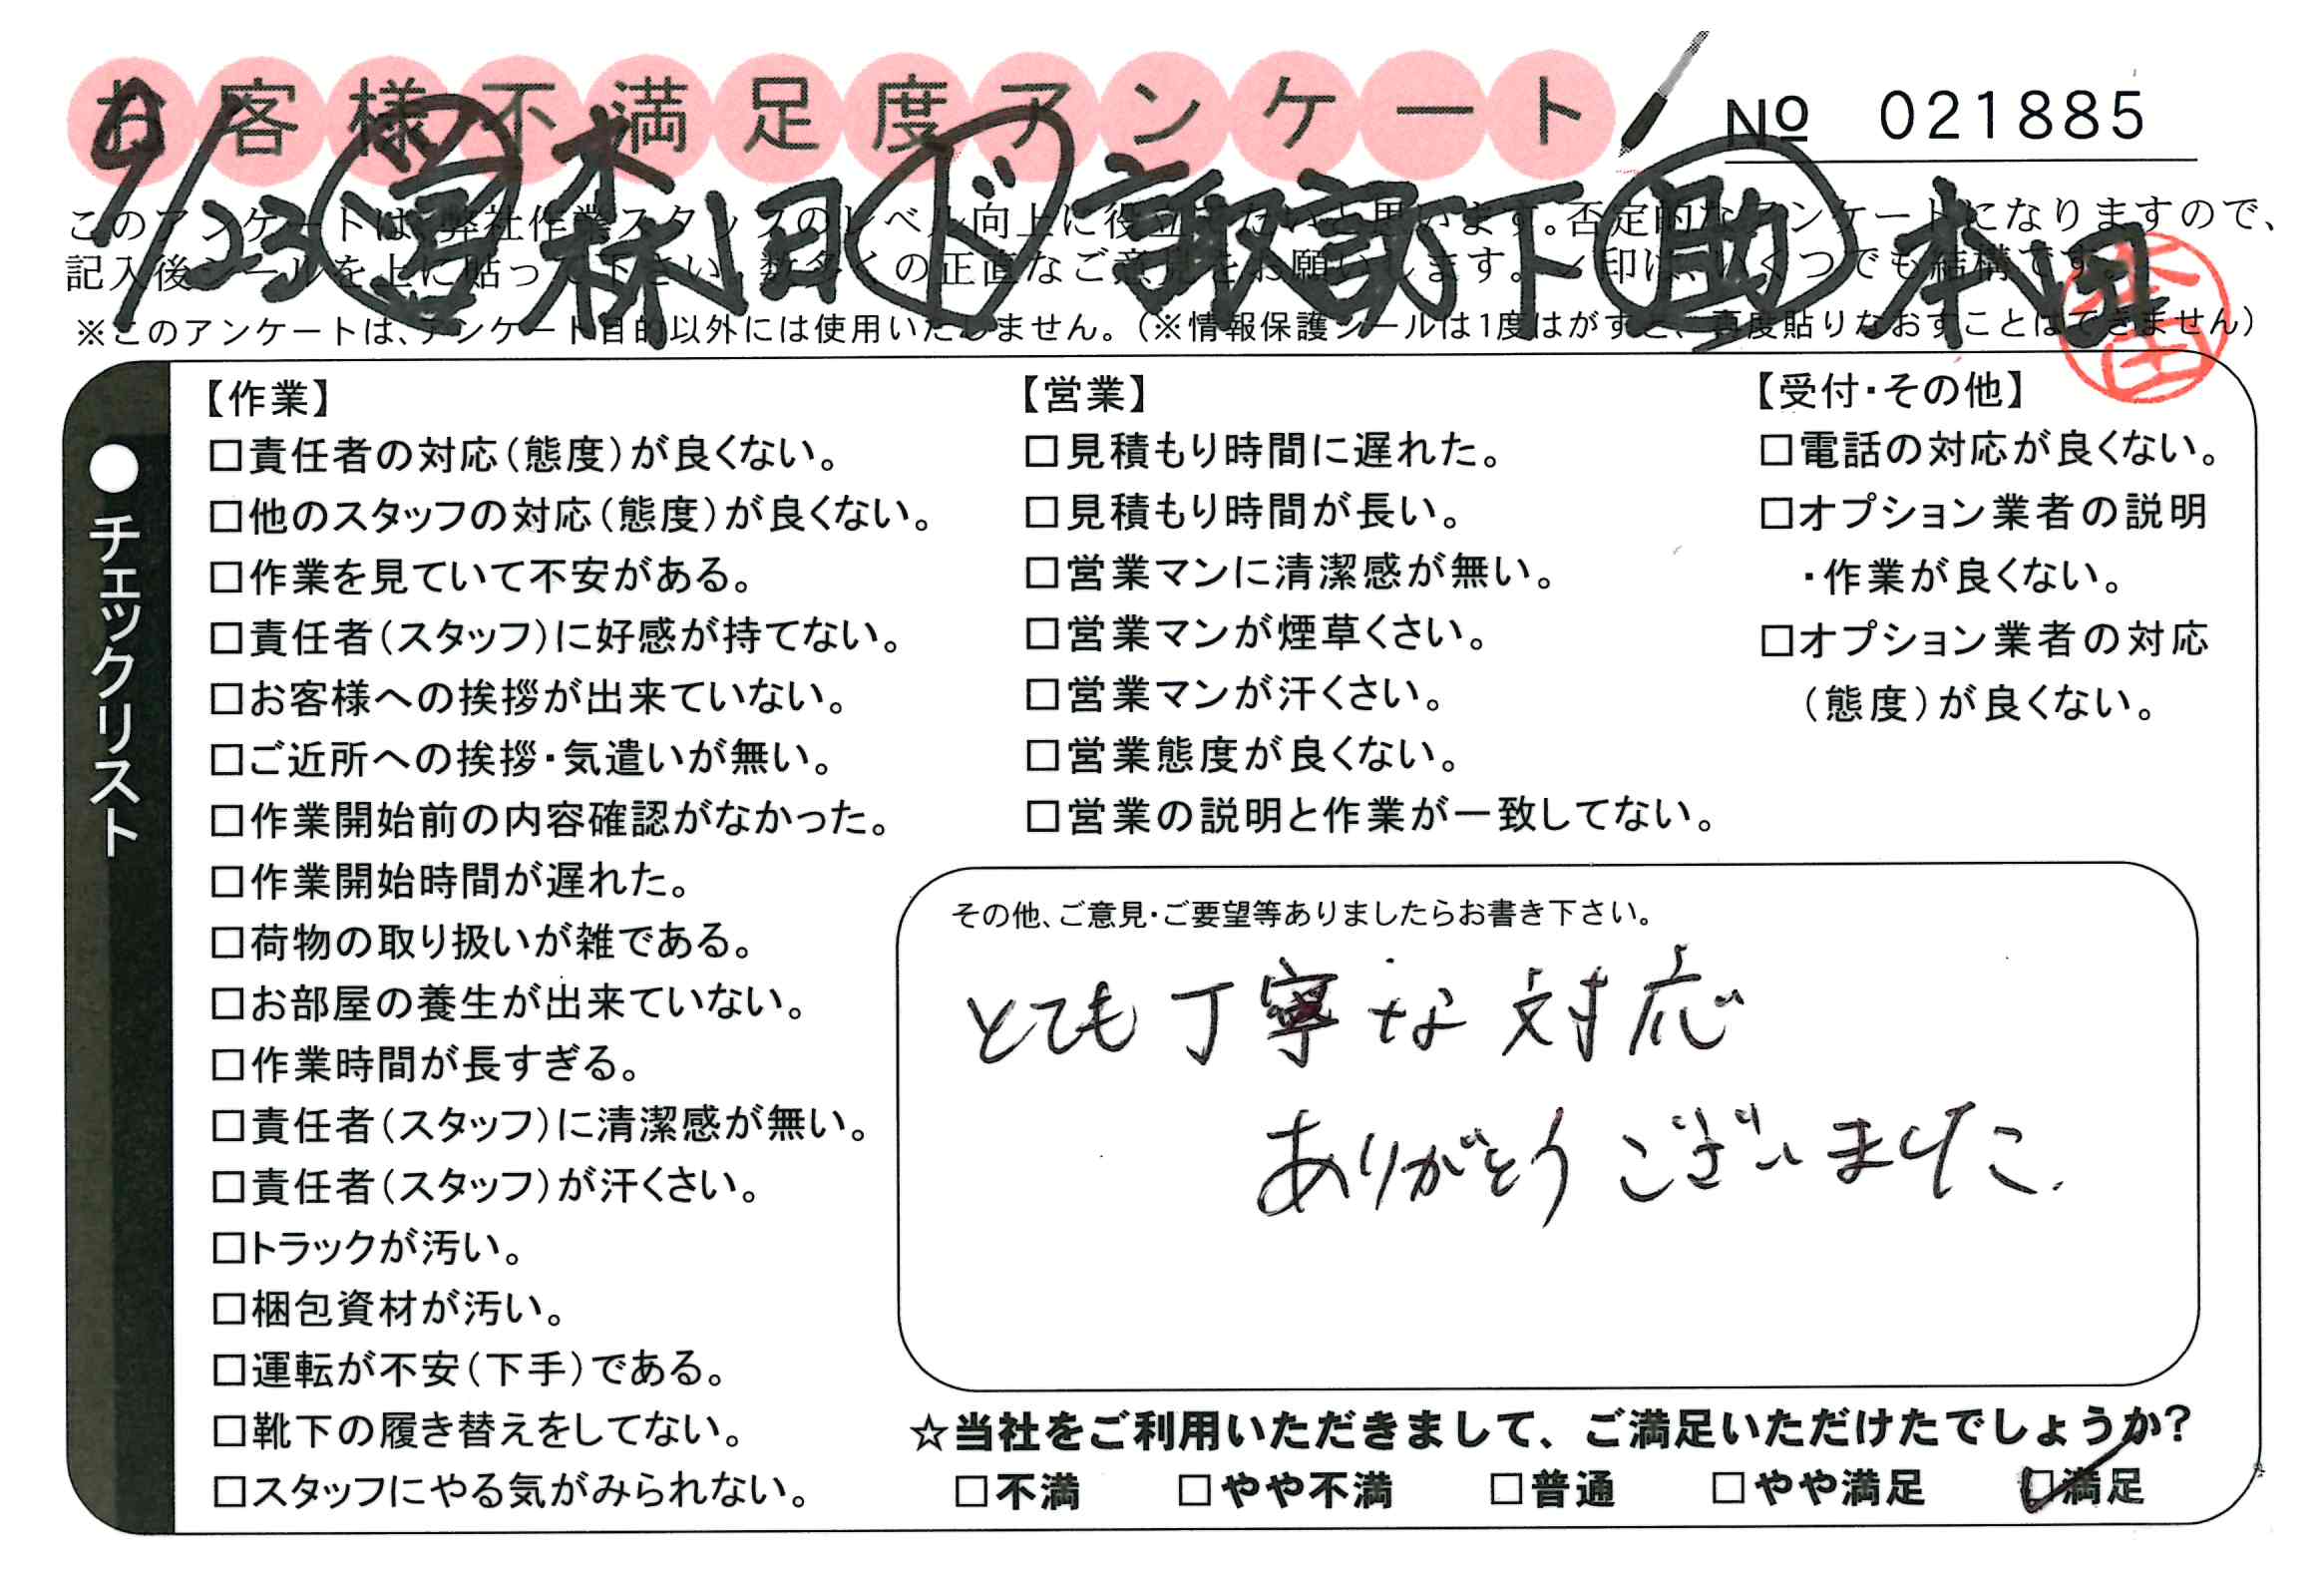 お客様不満足度アンケート
№ 021885
9/23 営 森田 ド 諏訪下 助 本田
このアンケートは、弊社作業スタッフのレベル向上に役立てたいと思います。否定的なアンケートになりますので、
記入後シールを上に貼って下さい。数多くの正直なご意見をお願いします。✓印は、いくつでも結構です。
※このアンケートは、アンケート目的以外には使用いたしません。（※情報保護シールは1度はがすと、再度貼りなおすことはできません）
本田
●チェックリスト
【作業】
□責任者の対応（態度）が良くない。
□他のスタッフの対応（態度）が良くない。
□作業を見ていて不安がある。
□責任者（スタッフ）に好感が持てない。
□お客様への挨拶が出来ていない。
□ご近所への挨拶・気遣いが無い。
□作業開始前の内容確認がなかった。
□作業開始時間が遅れた。
□荷物の取り扱いが雑である。
□お部屋の養生が出来ていない。
□作業時間が長すぎる。
□責任者（スタッフ）に清潔感が無い。
□責任者（スタッフ）が汗くさい。
□トラックが汚い。
□梱包資材が汚い。
□運転が不安（下手）である。
□靴下の履き替えをしてない。
□スタッフにやる気がみられない。
【営業】
□見積もり時間に遅れた。
□見積もり時間が長い。
□営業マンに清潔感が無い。
□営業マンが煙草くさい。
□営業マンが汗くさい。
□営業態度が良くない。
□営業の説明と作業が一致してない。
【受付・その他】
□電話の対応が良くない。
□オプション業者の説明
・作業が良くない。
□オプション業者の対応
（態度）が良くない。
その他、ご意見・ご要望等ありましたらお書き下さい。
とても丁寧な対応
ありがとうございました.
☆当社をご利用いただきまして、ご満足いただけたでしょうか?
□不満 □やや不満 □普通 □やや満足 ☑満足